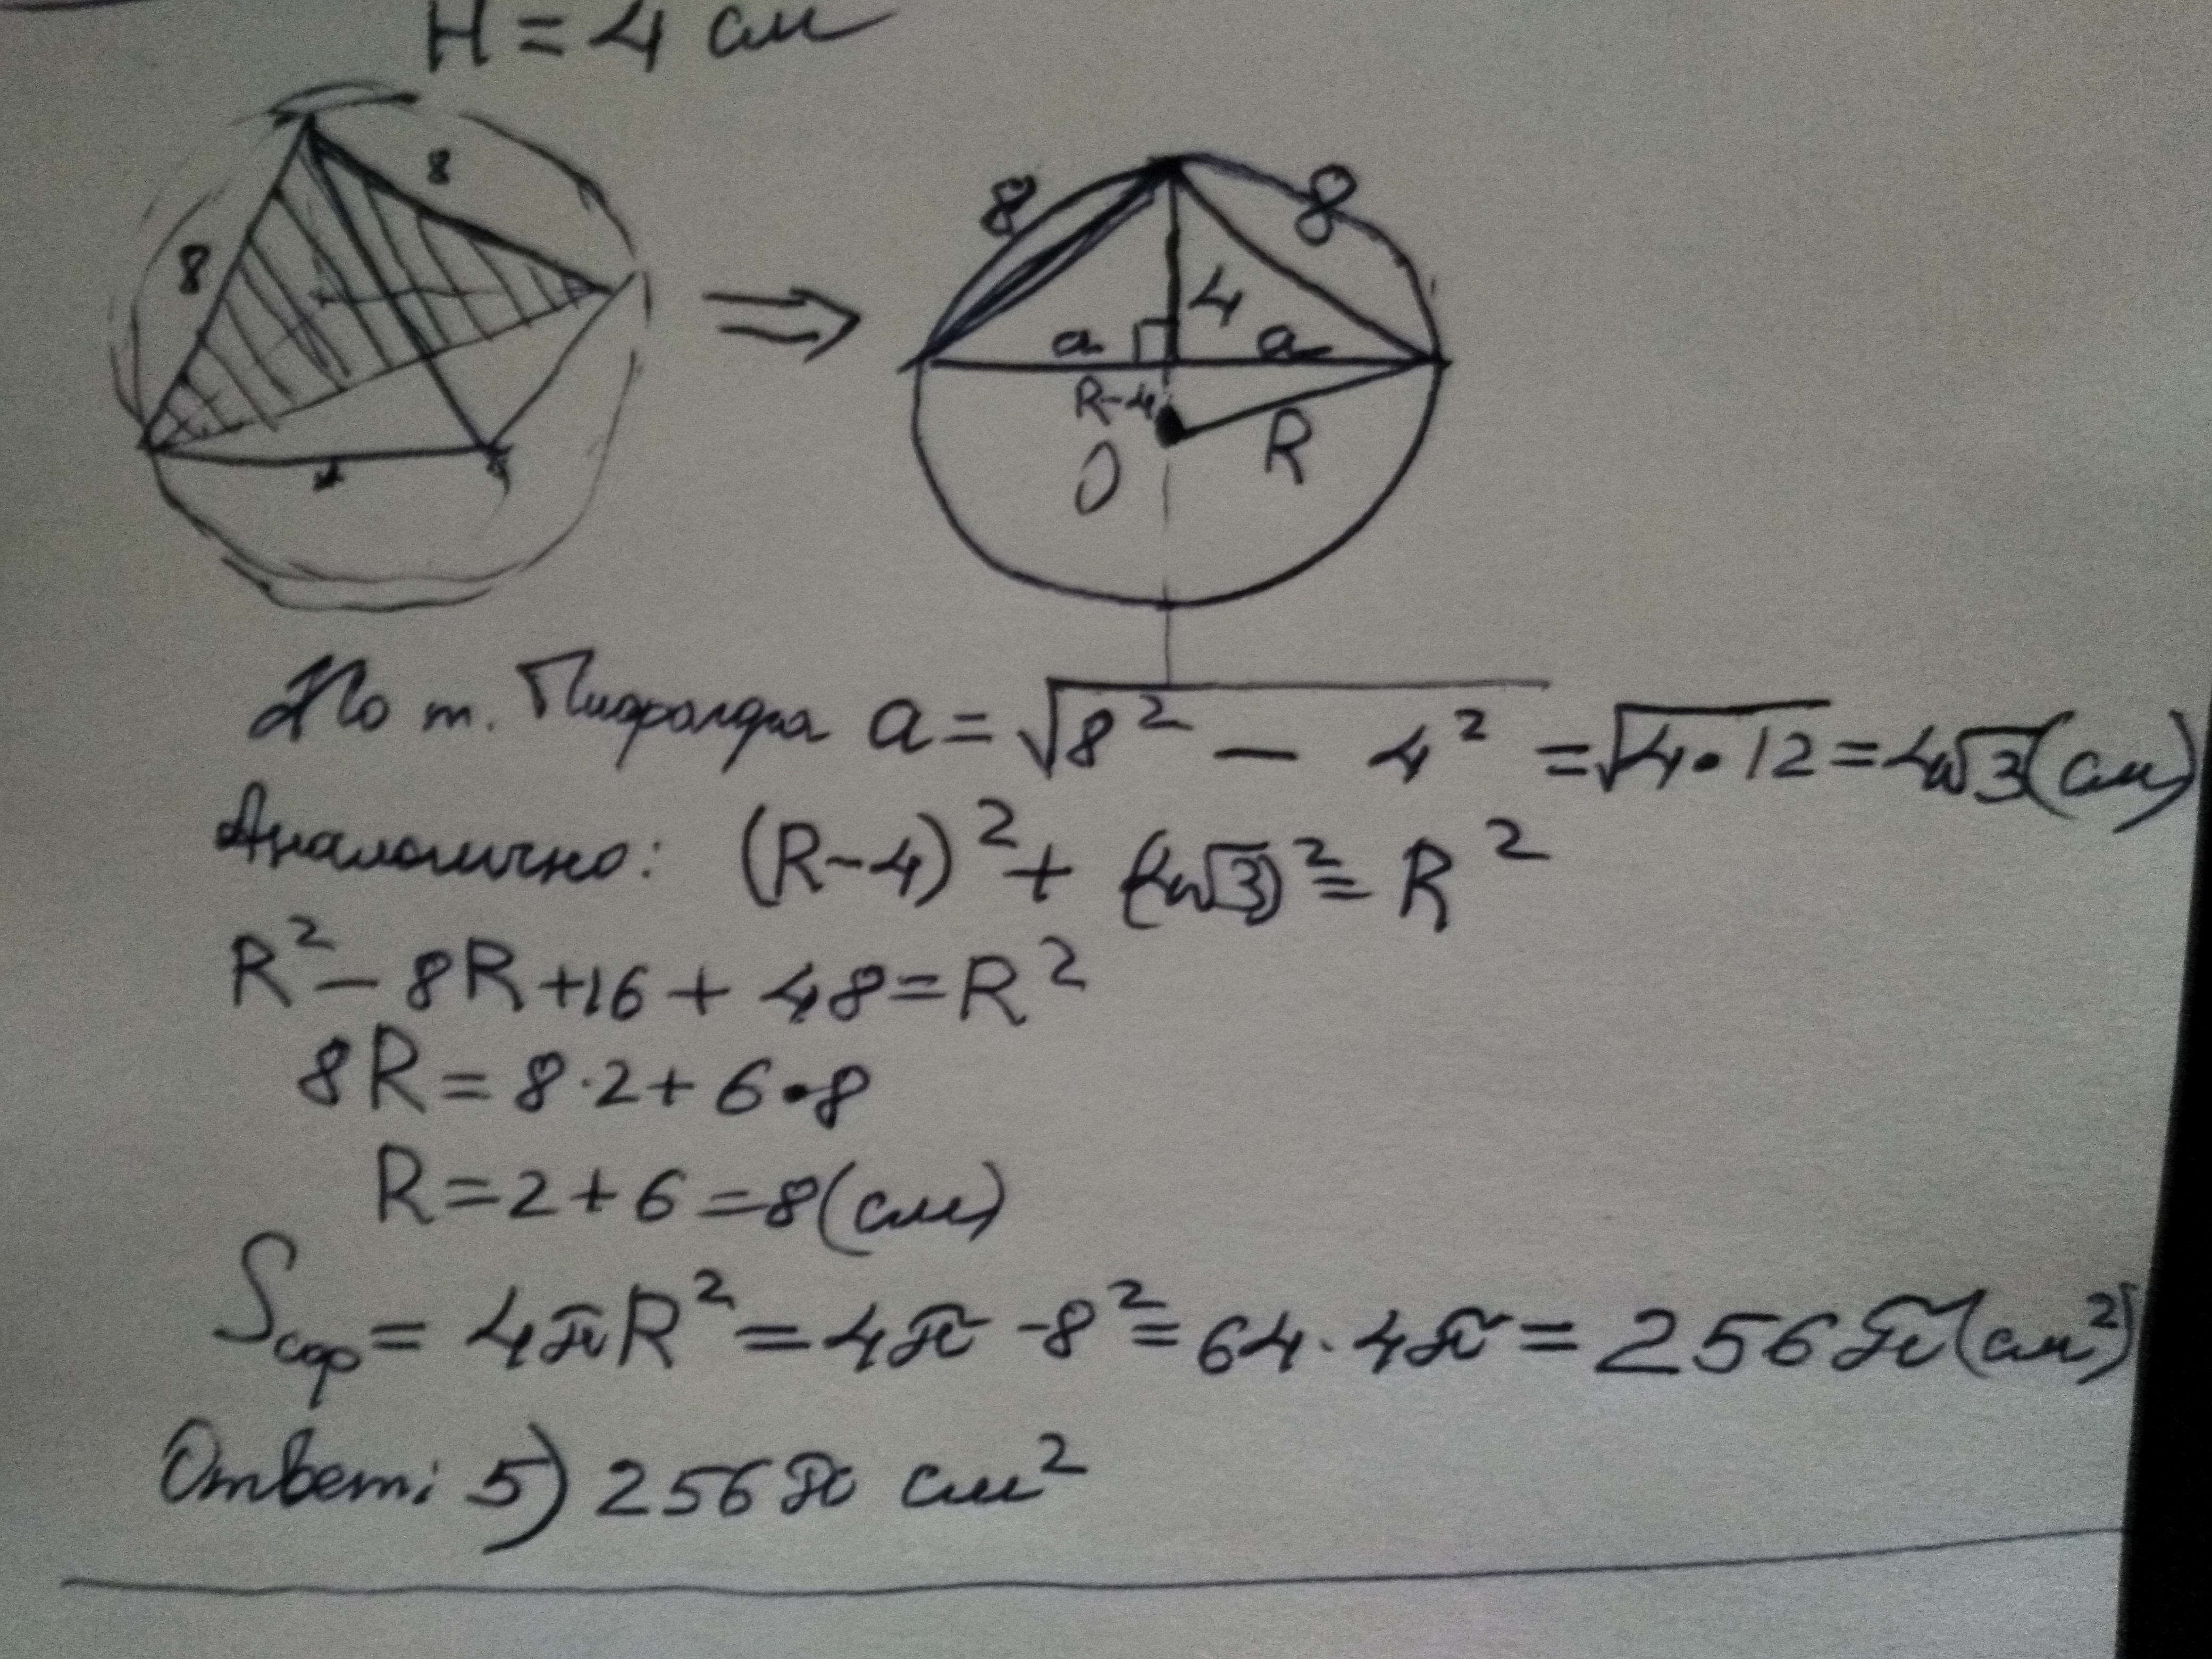 H = 4 см
8
8
8
8
4
a
a
R-4
O
R
По т. Пифагора a = √8² − 4² = √4·12 = 4√3 (см)
Аналогично: (R−4)² + (4√3)² = R²
R² − 8R + 16 + 48 = R²
8R = 8·2 + 6·8
R = 2 + 6 = 8 (см)
Sсф = 4πR² = 4π·8² = 64·4π = 256π (см²)
Ответ: 5) 256π см²